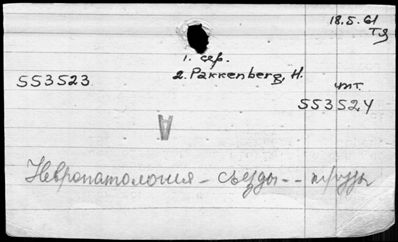 18.5.61
ТЯ
1. сер.
2. Pakkenberg, H.
553523
чит.
553524
A
Невропатология - съезды -- труды